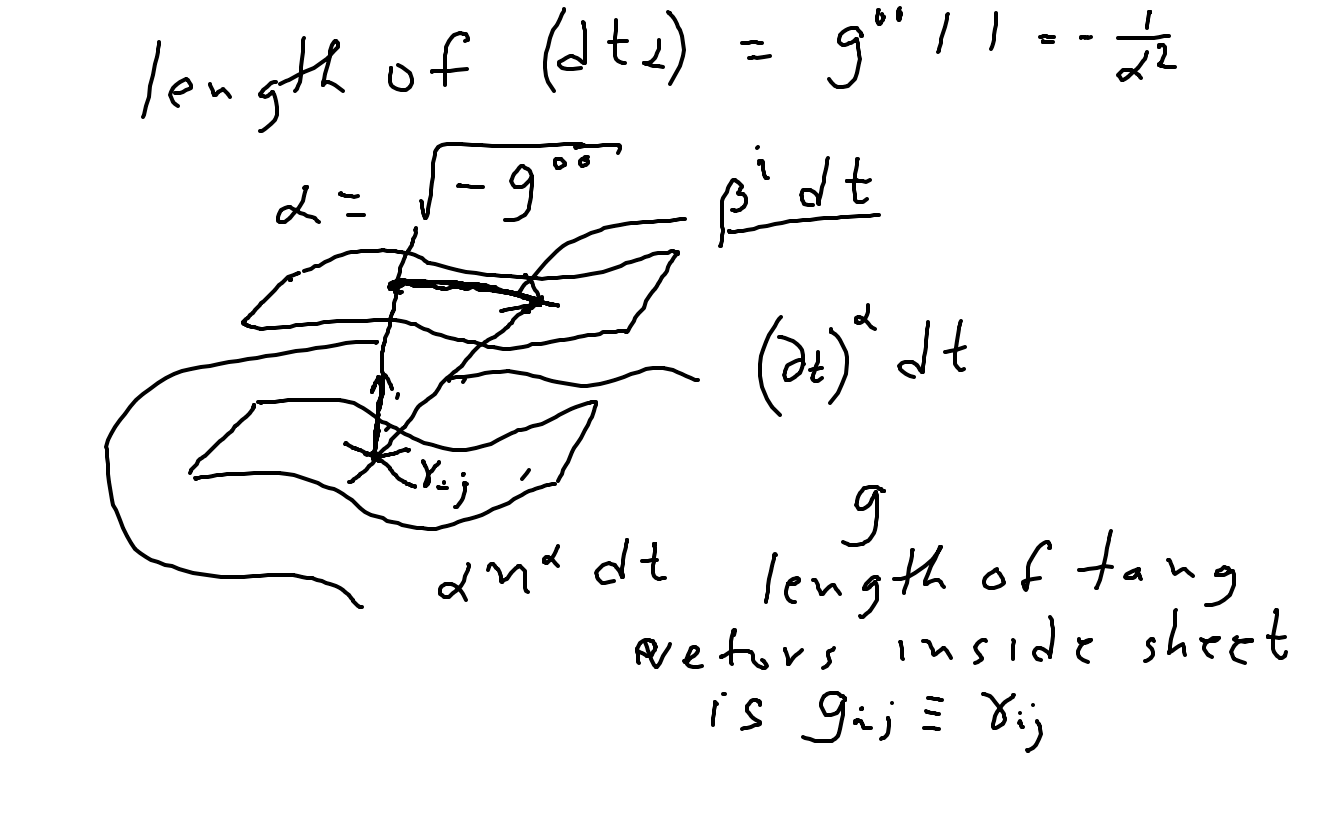 length of (dt_α) = g^{00} 1 1 = - 1/α²
α = √(-g^{00})
β^i dt
(∂_t)^α dt
γ_{ij}
g
α n^α dt
length of tang
vetors inside sheet
is g_{ij} ≡ γ_{ij}